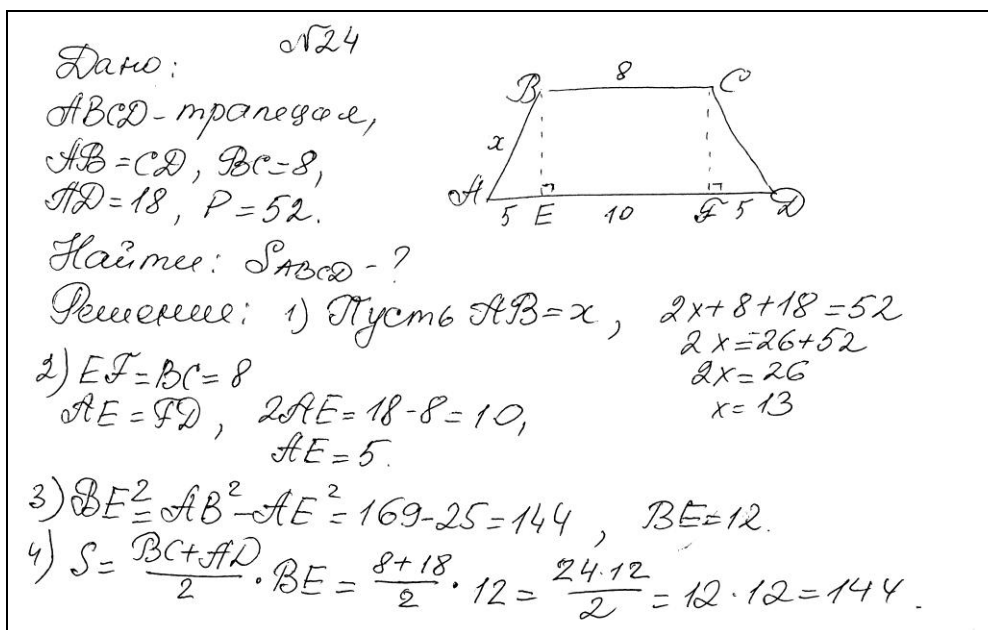 №24
Дано:
ABCD - трапеция,
AB = CD, BC = 8,
AD = 18, P = 52.
B 8 C
x
A 5 E 10 F 5 D
Найти: S_ABCD - ?
Решение: 1) Пусть AB = x, 2x + 8 + 18 = 52
2x = 26 + 52
2x = 26
x = 13
2) EF = BC = 8
AE = FD, 2AE = 18 - 8 = 10,
AE = 5.
3) BE² = AB² - AE² = 169 - 25 = 144, BE = 12.
4) S = (BC + AD)/2 · BE = (8 + 18)/2 · 12 = (24 · 12)/2 = 12 · 12 = 144.